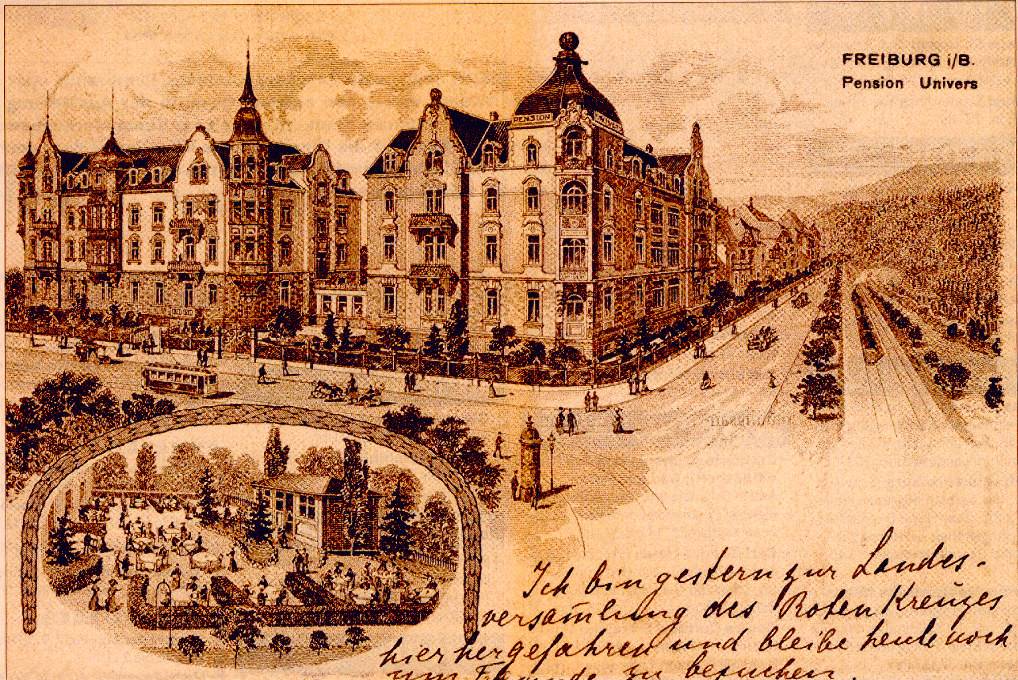 FREIBURG i/B.
Pension Univers
PENSION
Ich bin gestern zur Landes-
versam̄lung des Roten Kreuzes
hier hergefahren und bleibe heute noch
um Freunde zu besuchen.